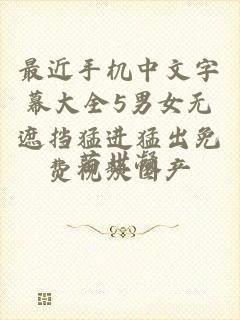 最近手机中文字
幕大全5男女无
遮挡猛进猛出免
费视频国产